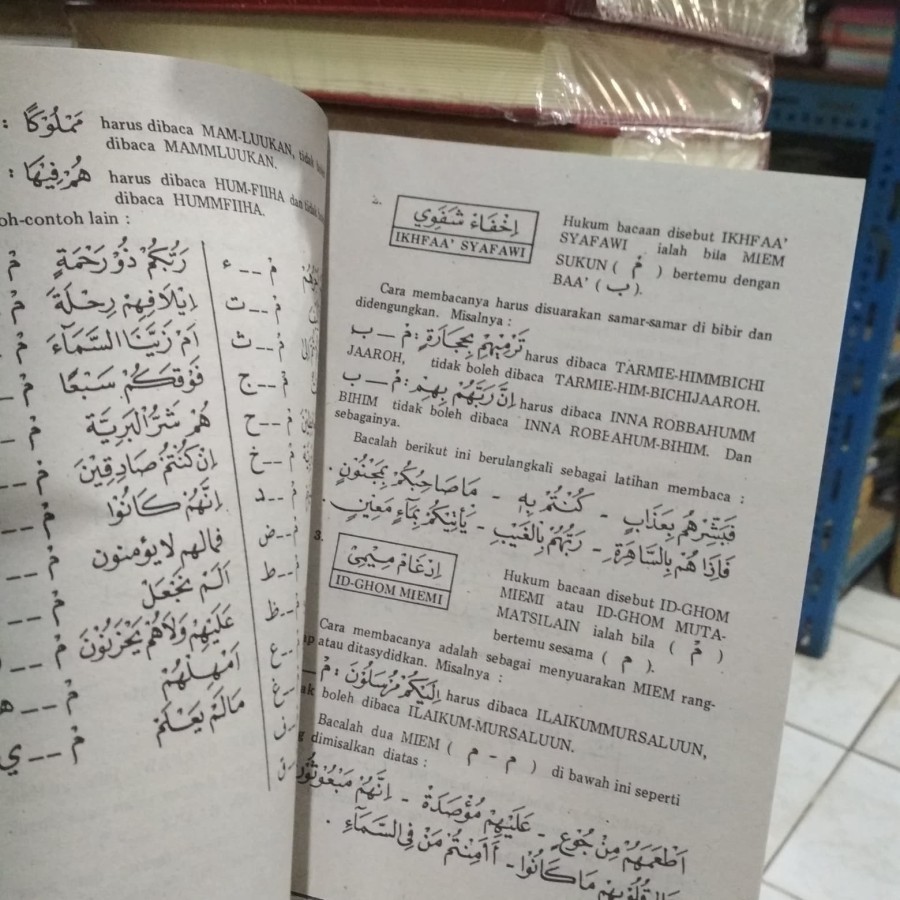 مَمْلُوْكًا : harus dibaca MAM-LUUKAN,
dibaca MAMMLUUKAN.
هُمْ فِيْهَا : harus dibaca HUM-FIIHA dan
dibaca HUMMFIIHA.
oh-contoh lain :
مْ _ _ ء رَبُّكُمْ ذُوْ رَحْمَةٍ
مْ _ _ ت اِيْلَافِهِمْ رِحْلَةَ
مْ _ _ ث اَمْ زَيَّنَّا السَّمَآءَ
مْ _ _ ج فَوْقَكُمْ سَبْعًا
مْ _ _ ح هُمْ شَرُّ الْبَرِيَّةِ
مْ _ _ خ اِنْ كُنْتُمْ صَادِقِيْنَ
مْ _ _ د اِنَّهُمْ كَانُوْا
ض فمالهم لايؤمنون
ط اَلَمْ نَجْعَلْ
ظ عَلَيْهِمْ وَلَاهُمْ يَحْزَنُوْنَ
ع اَمْهِلْهُمْ
غ مَالَمْ يَعْلَمْ
مْ _ _ ه
مْ _ _ ي
2.
اِخْفَاءْ شَفَوِي
IKHFAA' SYAFAWI
Hukum bacaan disebut IKHFAA'
SYAFAWI ialah bila MIEM
SUKUN ( مْ ) bertemu dengan
BAA' ( ب ).
Cara membacanya harus disuarakan samar-samar di bibir dan
didengungkan. Misalnya :
مْ _ ب : تَرْمِيْهِمْ بِحِجَارَةٍ harus dibaca TARMIE-HIMMBICHI
JAAROH, tidak boleh dibaca TARMIE-HIM-BICHIJAAROH.
مْ _ ب : اِنَّ رَبَّهُمْ بِهِمْ harus dibaca INNA ROBBAHUMM
BIHIM tidak boleh dibaca INNA ROBBAHUM-BIHIM. Dan
sebagainya.
Bacalah berikut ini berulangkali sebagai latihan membaca :
فَبَشِّرْهُمْ بِعَذَابٍ - كُنْتُمْ بِهِ - مَاصَاحِبُكُمْ بِمَجْنُوْنٍ .
فَاِذَا هُمْ بِالسَّاهِرَةِ - رَبَّهُمْ بِالْغَيْبِ - يَأْتِيْكُمْ بِمَآءٍ مَعِيْنٍ .
3.
اِدْغَامْ مِيْمِيْ
ID-GHOM MIEMI
Hukum bacaan disebut ID-GHOM
MIEMI atau ID-GHOM MUTA-
MATSILAIN ialah bila ( مْ )
bertemu sesama ( م ).
Cara membacanya adalah sebagai menyuarakan MIEM rang-
ap atau ditasydidkan. Misalnya :
مْ : اِلَيْكُمْ مُرْسَلُوْنَ harus dibaca ILAIKUMMURSALUUN,
ak boleh dibaca ILAIKUM-MURSALUUN.
Bacalah dua MIEM ( م - م ) di bawah ini seperti
g dimisalkan diatas :
اَطْعَمَهُمْ مِنْ جُوْعٍ - عَلَيْهِمْ مُؤْصَدَةٌ - اِنَّهُمْ مَبْعُوْثُوْنَ
قُلُوْبِهِمْ مَاكَانُوْا - أَاَمِنْتُمْ مَنْ فِى السَّمَآءِ .